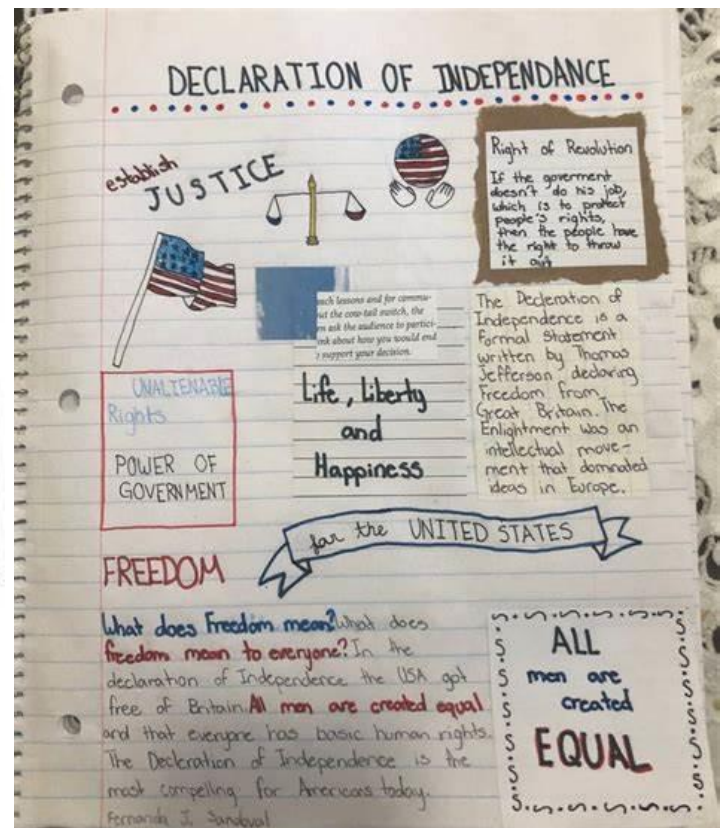 DECLARATION OF INDEPENDANCE
establish
JUSTICE
Right of Revolution
If the goverment
doesn't do his job,
which is to protect
people's rights,
then the people have
the right to throw
it out
ach lessons and for commu-
ut the cow-tail switch, the
n ask the audience to partici-
nk about how you would end
support your decision.
The Decleration of
Independence is a
Formal Statement
written by Thomas
Jefferson declaring
Freedom from
Great Britain. The
Enlightment was an
intellectual move-
ment that dominated
ideas in Europe.
UNALIENABLE
Rights
POWER OF
GOVERNMENT
Life, Liberty
and
Happiness
for the UNITED STATES
FREEDOM
What does Freedom mean? What does
freedom mean to everyone? In the
declaration of Independence the USA got
free of Britain. All men are created equal
and that everyone has basic human rights.
The Decleration of Independence is the
most compelling for Americans today.
Fernanda J. Sandoval
ALL
men are
created
EQUAL